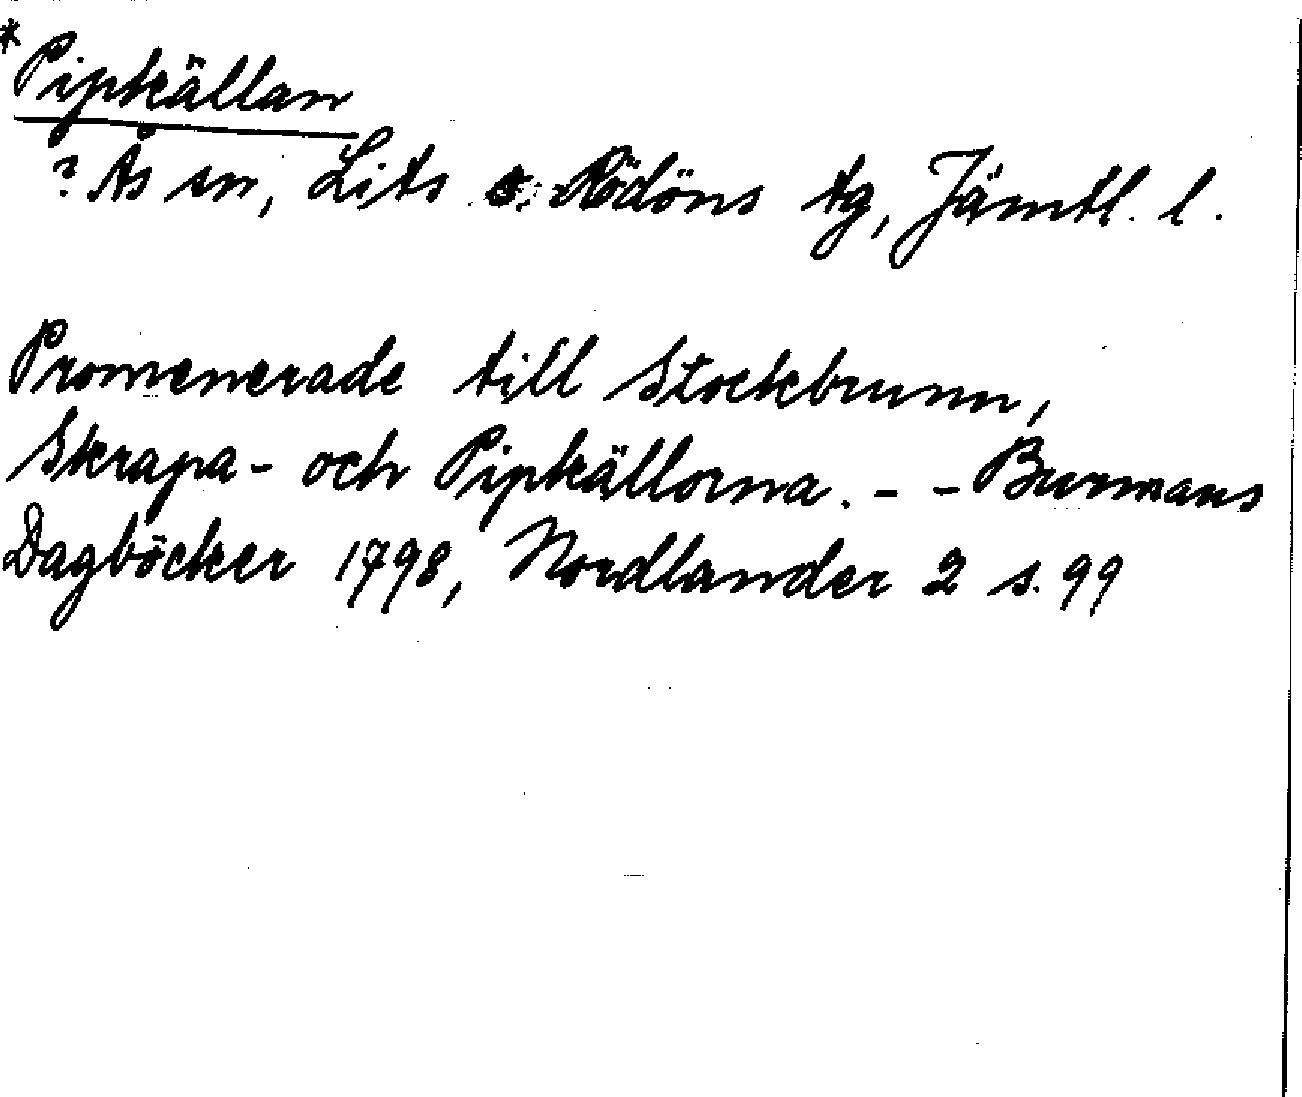 *Pipkällan
? Ås sn, Lits o. Rödöns tg, Jämtl. l.
Promenerade till Stockbrunn,
Skrapa- och Pipkällorna. - - Burmans
Dagböcker 1798, Nordlander 2 s. 99